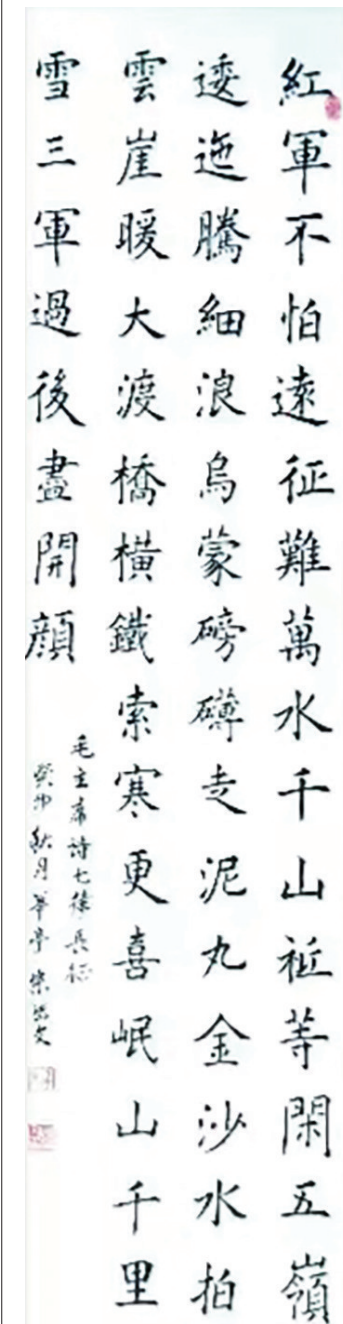 紅軍不怕遠征難萬水千山祇等閑五嶺
逶迤騰細浪烏蒙磅礴走泥丸金沙水拍
雲崖暖大渡橋橫鐵索寒更喜岷山千里
雪三軍過後盡開顔
毛主席诗七律長征
癸卯秋月華亭